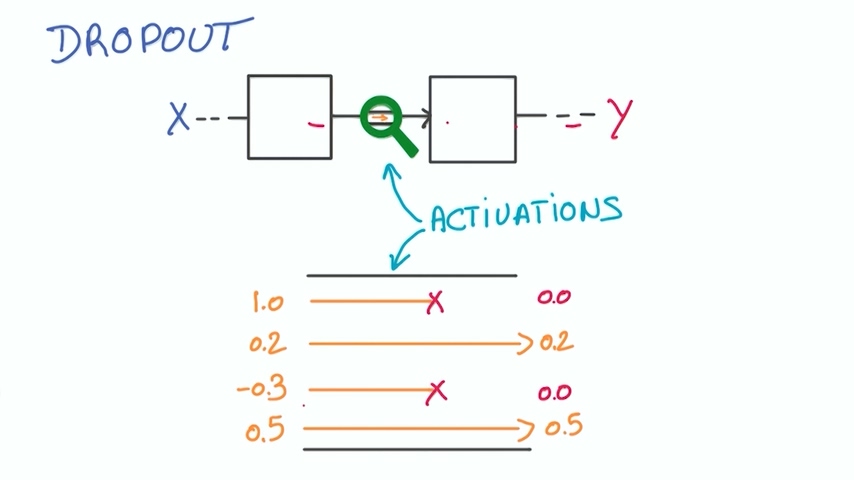 DROPOUT
X Y
ACTIVATIONS
1.0 X 0.0
0.2 0.2
-0.3 X 0.0
0.5 0.5